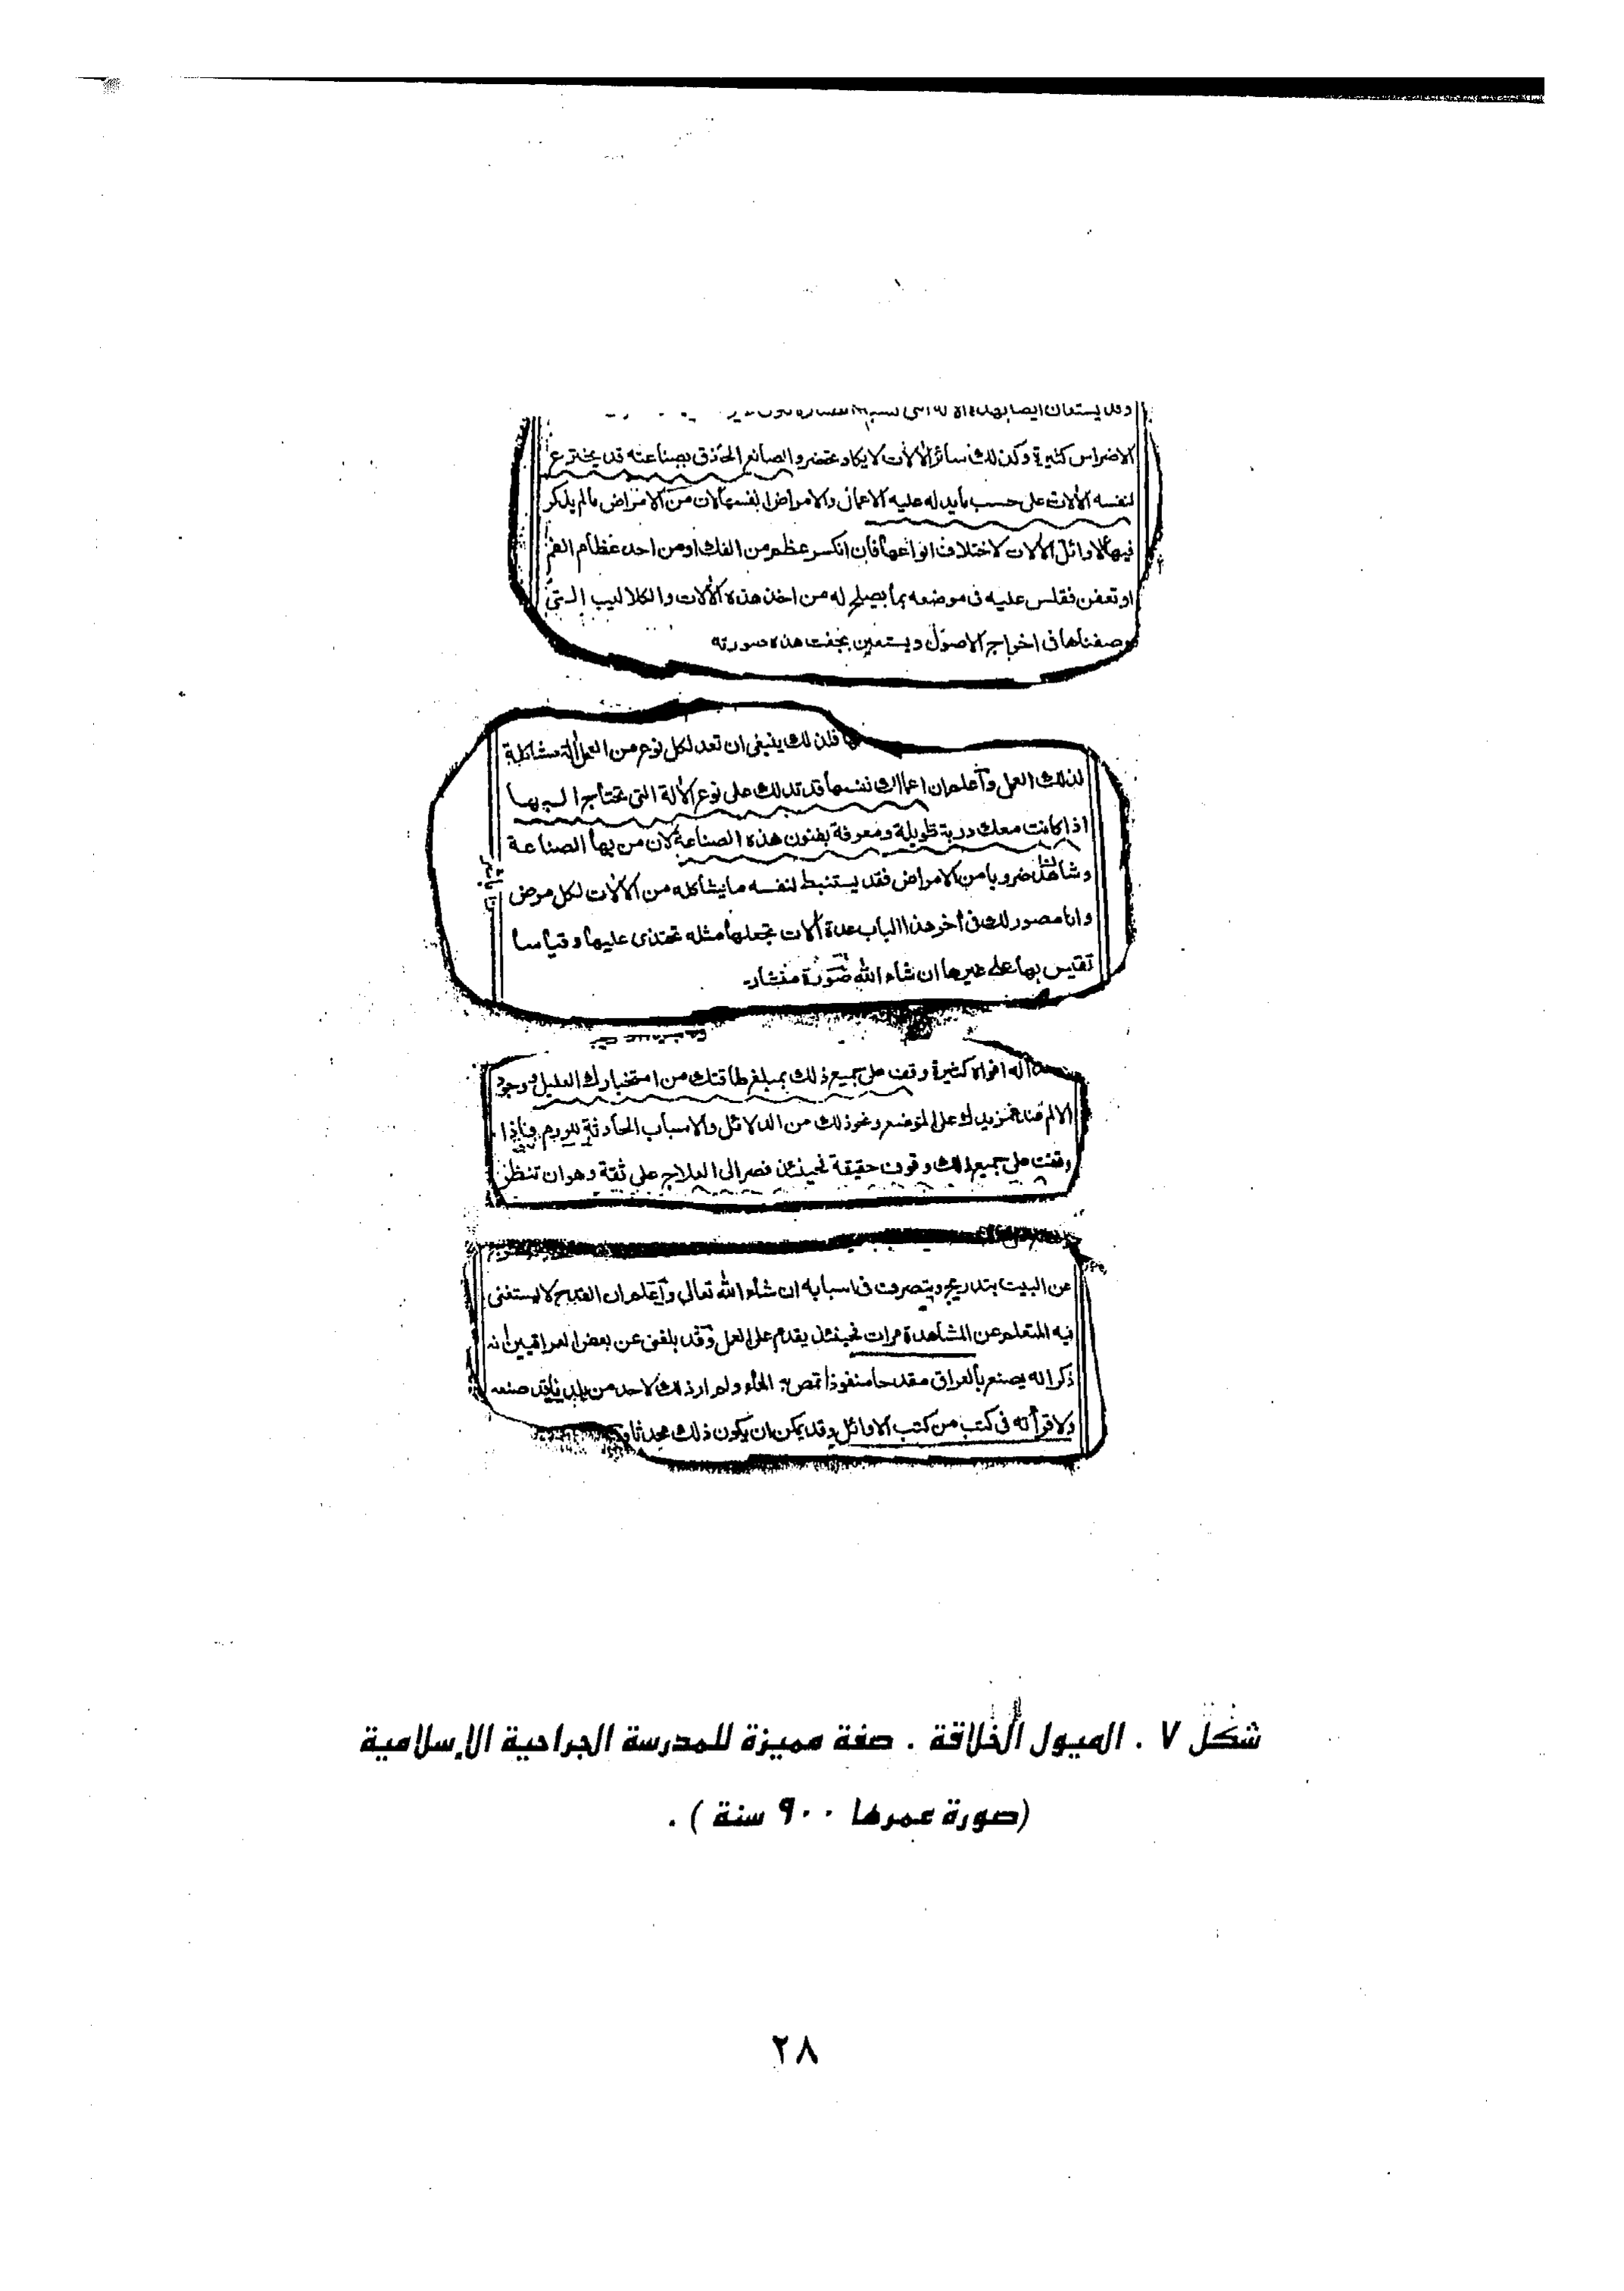 وقد يستعان ايضا بهذه الالة التى
الاضراس كثيرة وكذلك سائر الآلات لا يكاد تحضر والصانع الحاذق بصناعته قد يخترع
لنفسه الآلات على حسب ما يدله عليه الاعمال والامراض انفسها لان من الامراض ما لم يذكر
فيها الاوائل الآلات لاختلاف انواعها فان انكسر عظم من الفك او من احد عظام الفم
او تعفن ففتش عليه فى موضعه بما يصلح له من اخذ هذه الآلات والكلاليب التى
وصفناها فى اخراج الاصول ويستعين بجفت هذه صورته
فلذلك ينبغى ان تعد لكل نوع من العمل آلة مشاكلة
لذلك العمل وآعلم ان اعمالك نفسها قد تدلك على نوع الآلة التى تحتاج اليها
اذا كانت معك دربة طويلة ومعرفة بفنون هذه الصناعة لان من بها الصناعة
وشاهد ضروبا من الامراض فقد يستنبط لنفسه ما يشاكله من الآلات لكل مرض
وانا مصور لك فى أخر هذا الباب عدة آلات تجعلها مثله تحتذى عليها وقياسا
تقايس بها على غيرها ان شاء الله صورة منشار
له افواه كثيرة وقف على جميع ذلك بمبلغ طاقتك من استخبارك العليل ووجود
الالم عند غمز يدك على الموضع ونحو ذلك من الدلائل والاسباب الحادثة للورم فاذا
وقفت على جميع ذلك وقوف حقيقة فحينئذ فصر الى العلاج على ثقة وهو ان تنظر
عن البيت بتدريج ويتصرف فى اسبابه ان شاء الله تعالى وآعلم ان القدح لا يستغنى
فيه المتعلم عن المشاهدة مرات فحينئذ يقدم على العمل وقد بلغنى عن بعض العراقيين انه
ذكر انه يصنع بالعراق مقدحا منفوذا تمص به الماء ولم ار ذلك لاحد من بلدنا قد صنعه
ولا قرأته فى كتب من كتب الاوائل وقد يمكن ان يكون ذلك محدثا
شكل ٧ . الميول الخلاقة . صفة مميزة للمدرسة الجراحية الإسلامية
(صورة عمرها ٩٠٠ سنة ) .
٢٨